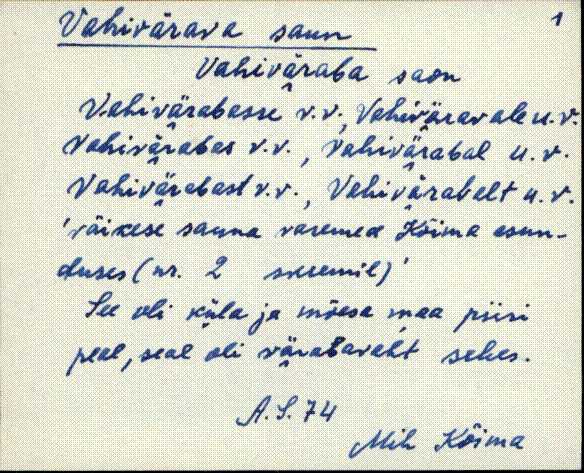 1
Vahivärava saun
Vahiväraba saon
Vahivärabasse v.v., Vahiväravale u.v.
Vahivärabas v.v., Vahivärabal u.v.
Vahivärabast v.v., Vahivärabelt u.v.
'väikese sauna varemed Kõima asun-
duses (nr. 2 skeemil)'
See oli küla ja mõesa maa piiri
peal, seal oli värabavaht sehes.
A.S. 74
Mih Kõima